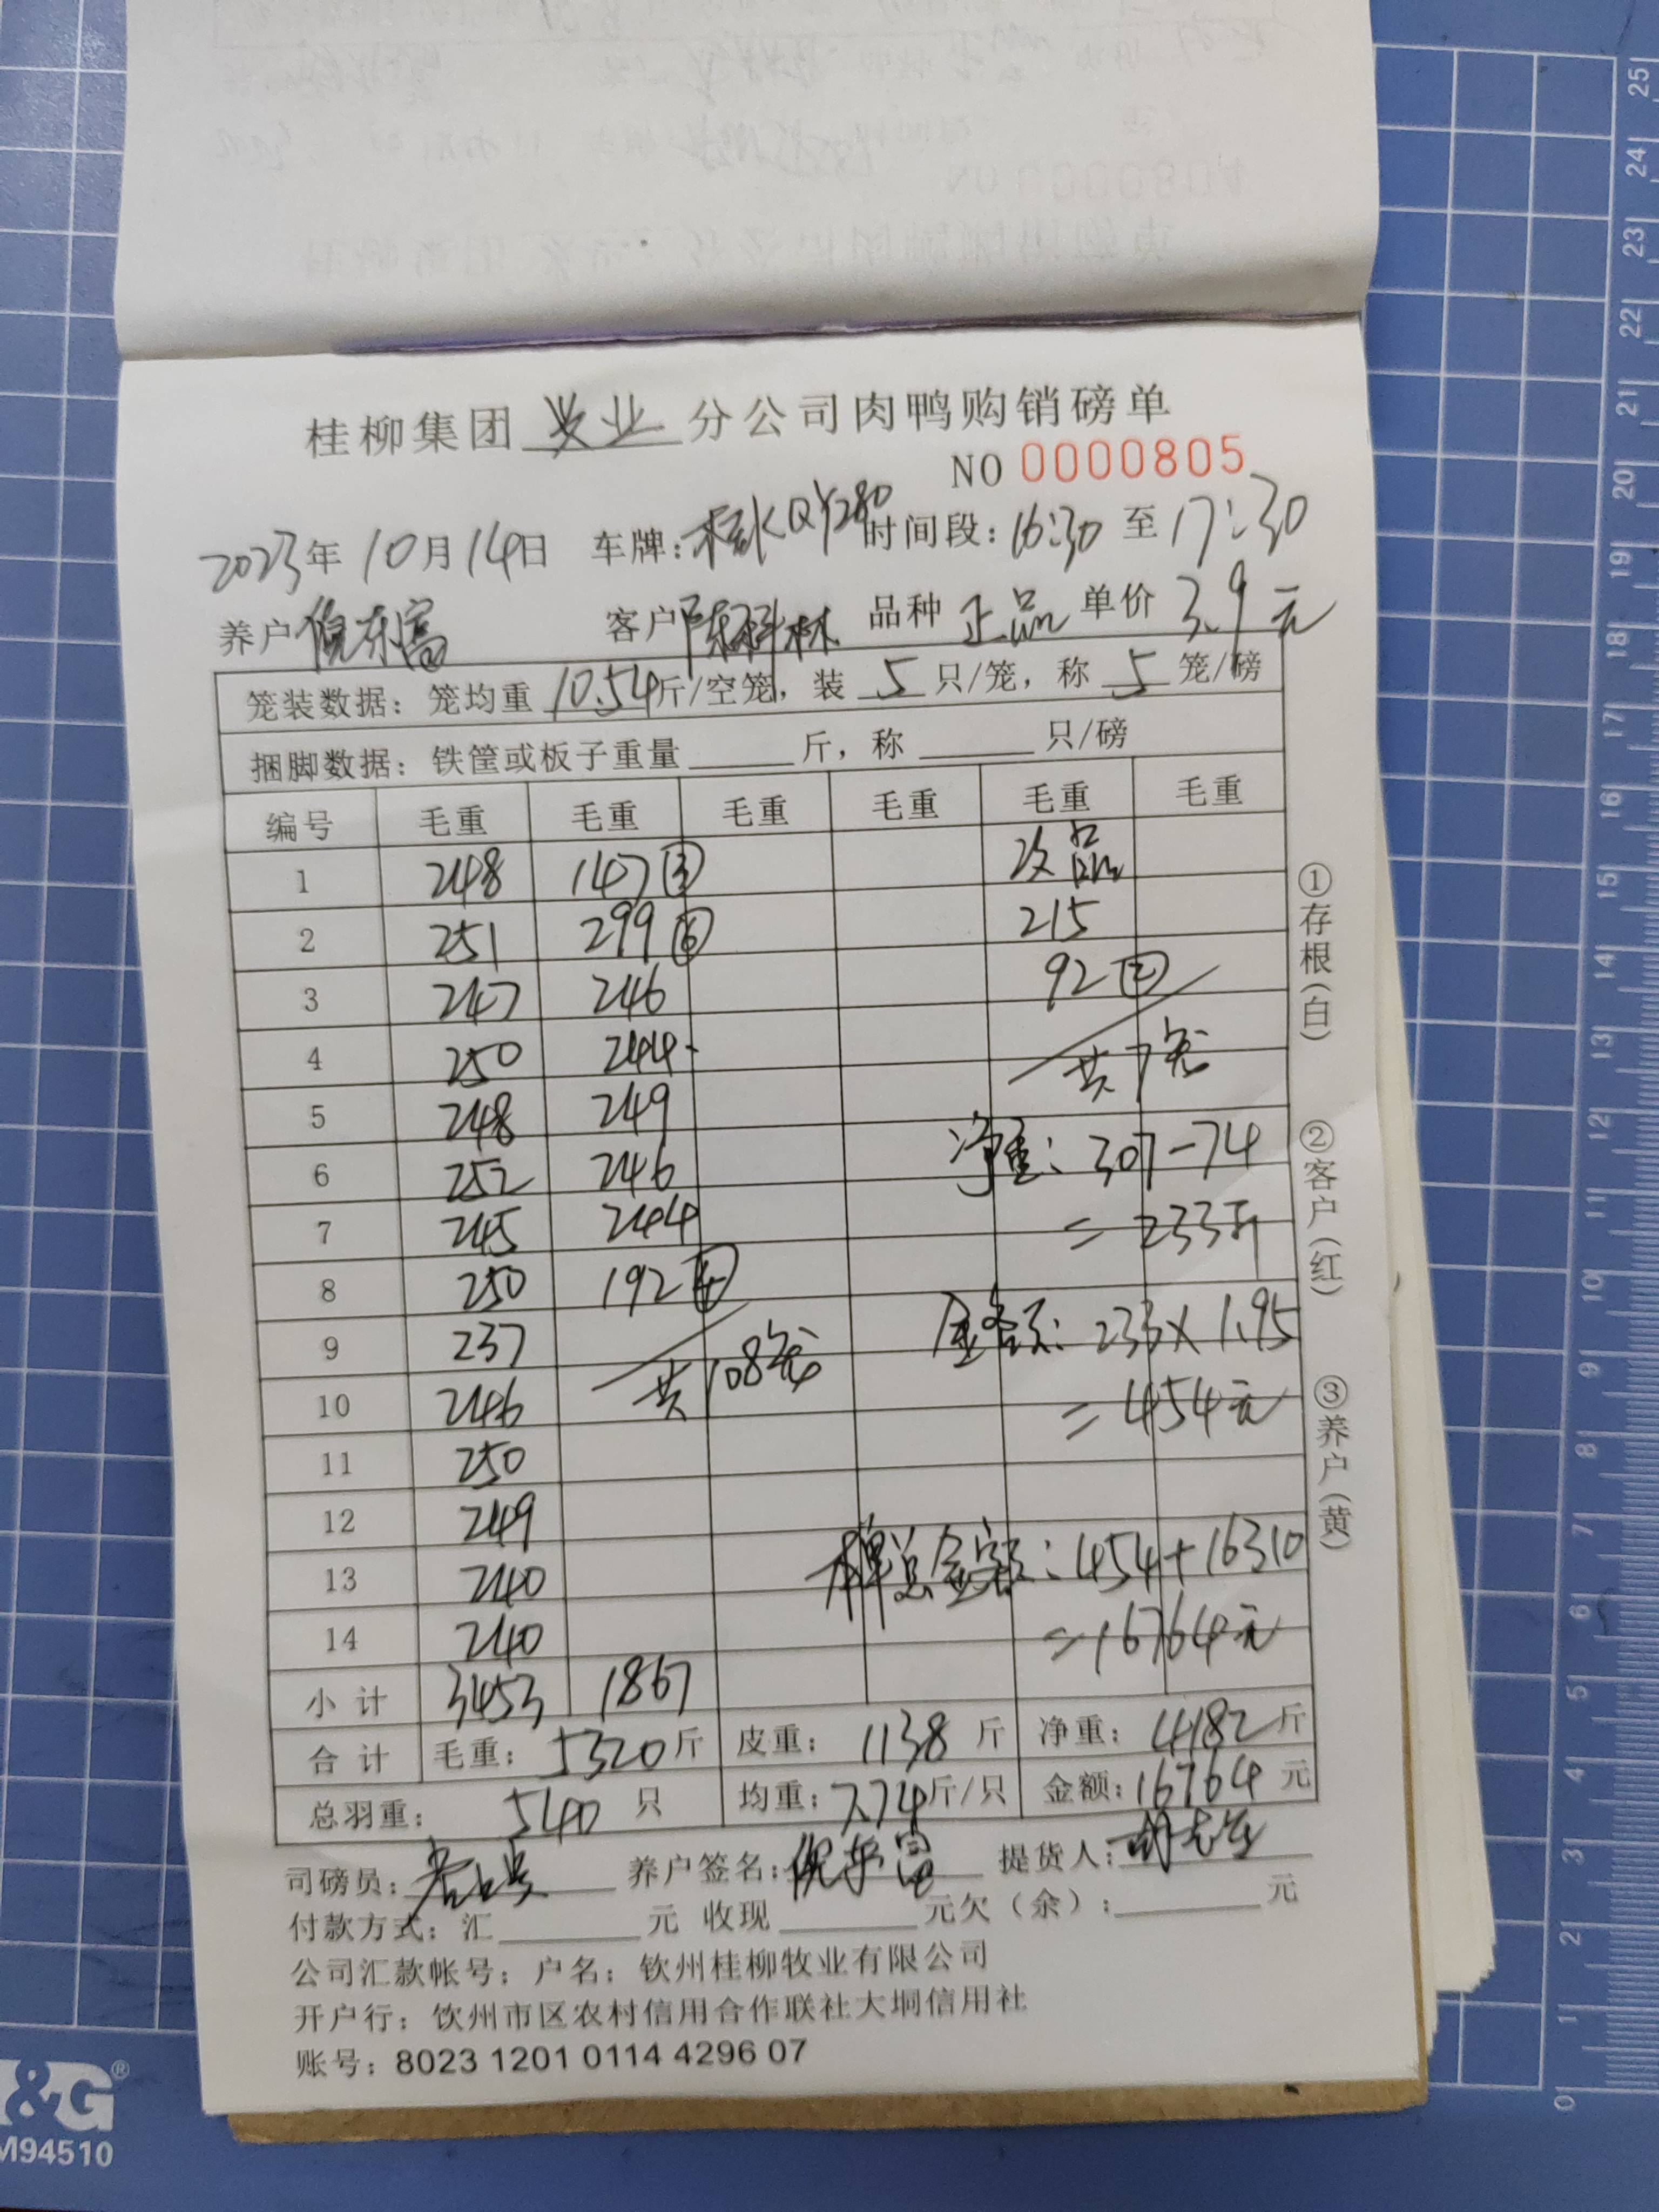 桂柳集团 兴业 分公司肉鸭购销磅单
NO 0000805
2023年 10月 14日 车牌: 桂KQY280 时间段: 16:30 至 17:30
养户 倪东富 客户 陈科林 品种 正品 单价 3.9元
笼装数据: 笼均重 10.54斤/空笼, 装 5 只/笼, 称 5 笼/磅
捆脚数据: 铁筐或板子重量 斤, 称 只/磅
编号 毛重 毛重 毛重 毛重 毛重 毛重
1 248 147③ 次品
2 251 299⑥ 215
3 247 246 92㊁
4 250 244 共7笼
5 248 249
6 252 246 净重: 307-74
7 245 244 =233斤
8 250 192④
9 237 共108笼 金额: 233×1.95
10 246 =454元
11 250
12 249
13 240 本单总金额: 454+16310
14 240 =16764元
小计 3453 1867
合计 毛重: 5320斤 皮重: 1138 斤 净重: 4182斤
总羽重: 540 只 均重: 7.74斤/只 金额: 16764 元
司磅员: 养户签名: 倪东富 提货人:
付款方式: 汇 元 收现 元欠(余): 元
公司汇款帐号: 户名: 钦州桂柳牧业有限公司
开户行: 钦州市区农村信用合作联社大垌信用社
账号: 8023 1201 0114 4296 07
①存根(白)
②客户(红)
③养户(黄)
&G®
M94510
25
24
23
22
21
20
19
18
17
16
15
14
13
12
11
10
9
8
7
6
5
4
3
2
1
0